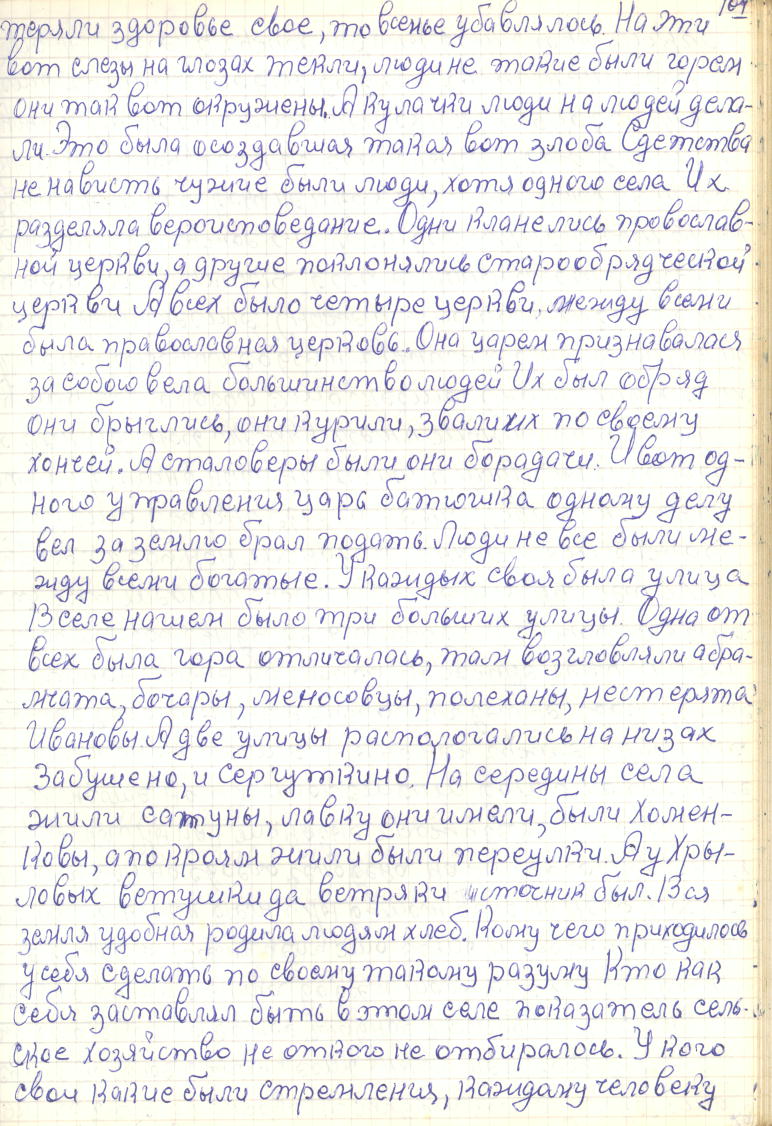 107
теряли здоровье свое, то всенье убавлялось. На эти
вот слезы на глозах текли, люди не такие были горем
они так вот окружены. А кулачки люди на людей дела-
ли. Это была осоздавшая такая вот злоба С детства
не нависть чужие были люди, хотя одного села Их
разделяла вероисповедание. Одни кланелись провослав-
ной церкви, а другие поклонялись старообрядческой
церкви А всех было четыре церкви, между всеми
была православная церковь. Она царем признавалася
за собою вела большинство людей Их был обряд
они брыглись, они курили, звали их по своему
хончей. А сталоверы были они борадачи. И вот од-
ного управления царь батюшка одному делу
вел за землю брал подать. Люди не все были ме-
жду всеми богатые. У каждых своя была улица
В селе нашем было три больших улицы. Одна от
всех была гора отличалась, там возгловляли абра-
мчата, бочары, меносовцы, полеханы, нестерята
Ивановы. А две улицы распологались на низах
Забушено, и Сергуткино. На середины села
жили сатуны, лавку они имели, были Хомен-
ковы, а по кроям жили были переулки. А у Хры-
ловых ветушки да ветряки источник был. Вся
земля удобная родила людям хлеб. Кому чего приходилось
у себя сделать по своему такому разуму Кто как
себя заставлял быть в этом селе показатель сель-
ское хозяйство не откого не отбиралось. У кого
свои какие были стремления, каждому человеку